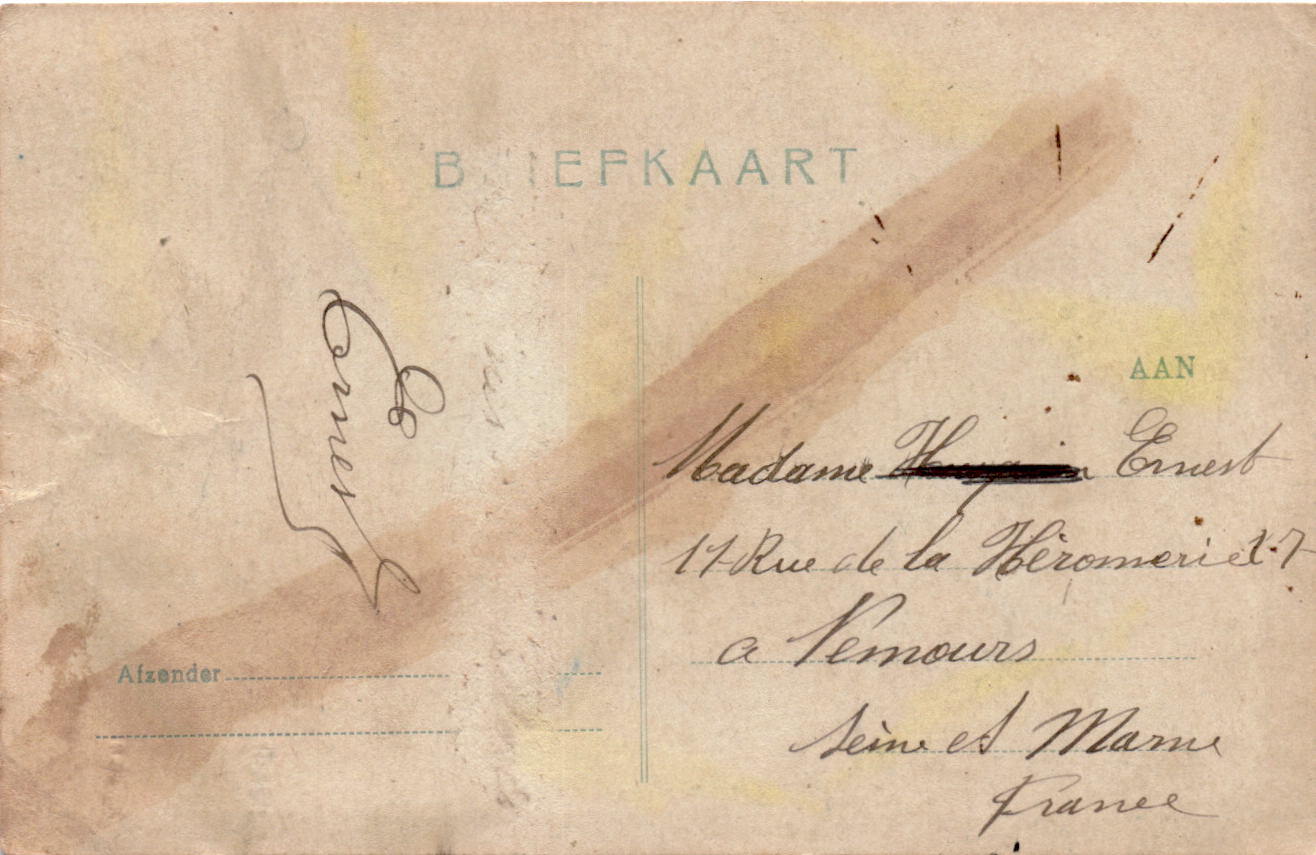 BRIEFKAART
AAN
Ernest
Madame Ernest
17 Rue de la Héromerie 17
a Nemours
Seine et Marne
France
Afzender